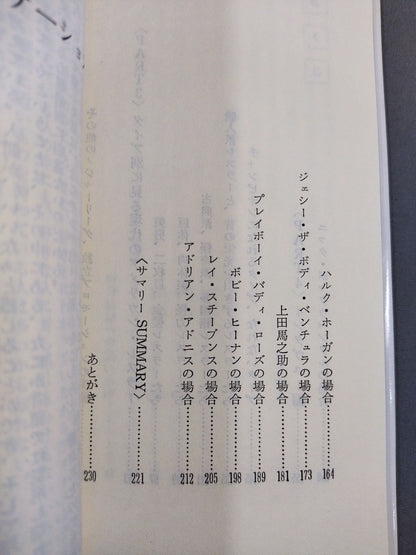 ハルク・ホーガンの場合…………164
ジェシー・ザ・ボディ・ベンチュラの場合…………173
上田馬之助の場合…………181
プレイボーイ・バディ・ローズの場合…………189
ボビー・ヒーナンの場合…………198
レイ・スチーブンスの場合…………205
アドリアン・アドニスの場合…………212
〈サマリー SUMMARY〉…………221
あとがき…………230